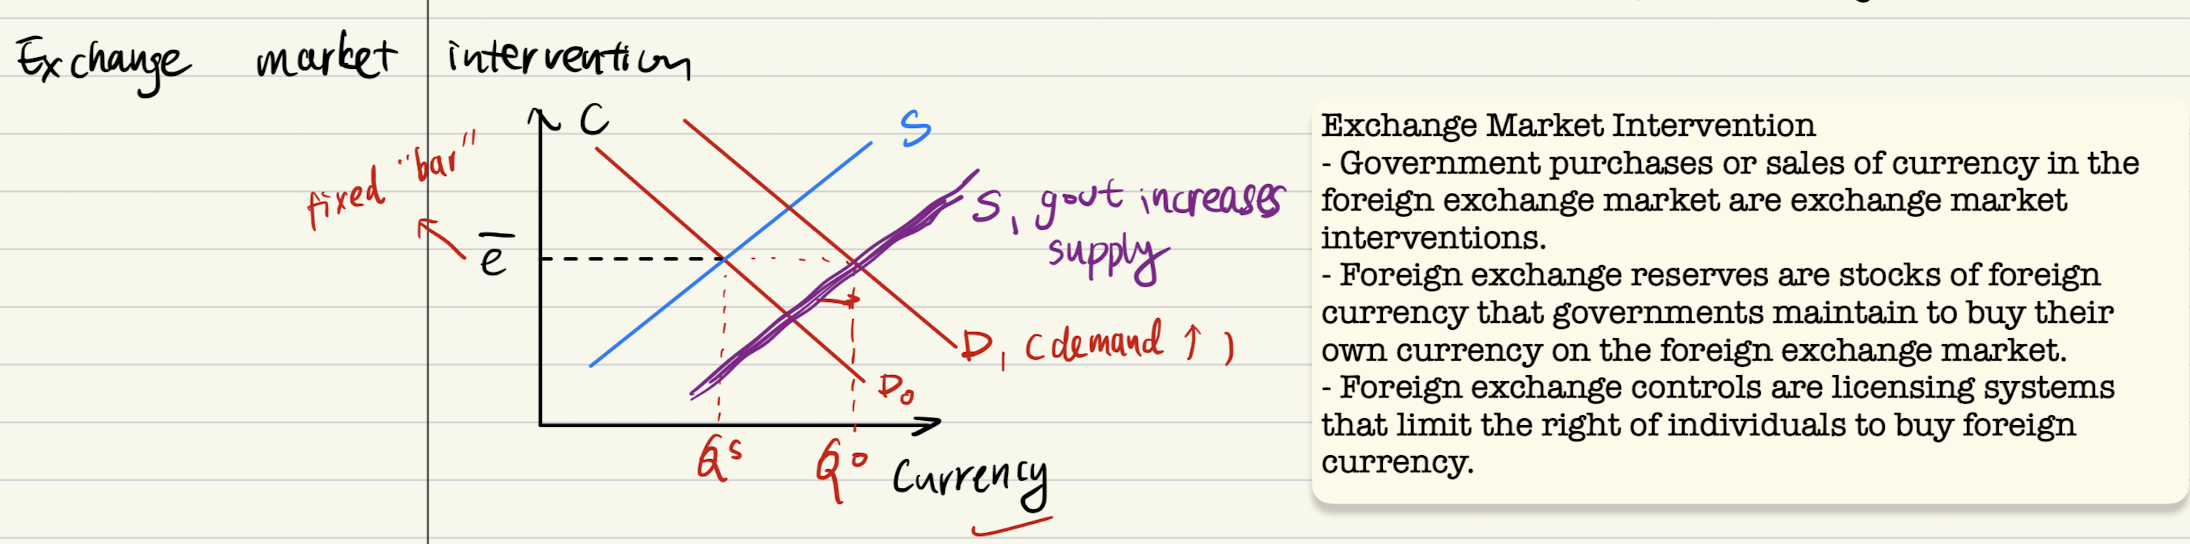 Exchange market intervention
C
S
fixed "bar"
e̅
S₁ gov't increases
supply
D₁ (demand ↑)
D₀
Qˢ
Qᴰ
Currency
Exchange Market Intervention
- Government purchases or sales of currency in the
foreign exchange market are exchange market
interventions.
- Foreign exchange reserves are stocks of foreign
currency that governments maintain to buy their
own currency on the foreign exchange market.
- Foreign exchange controls are licensing systems
that limit the right of individuals to buy foreign
currency.